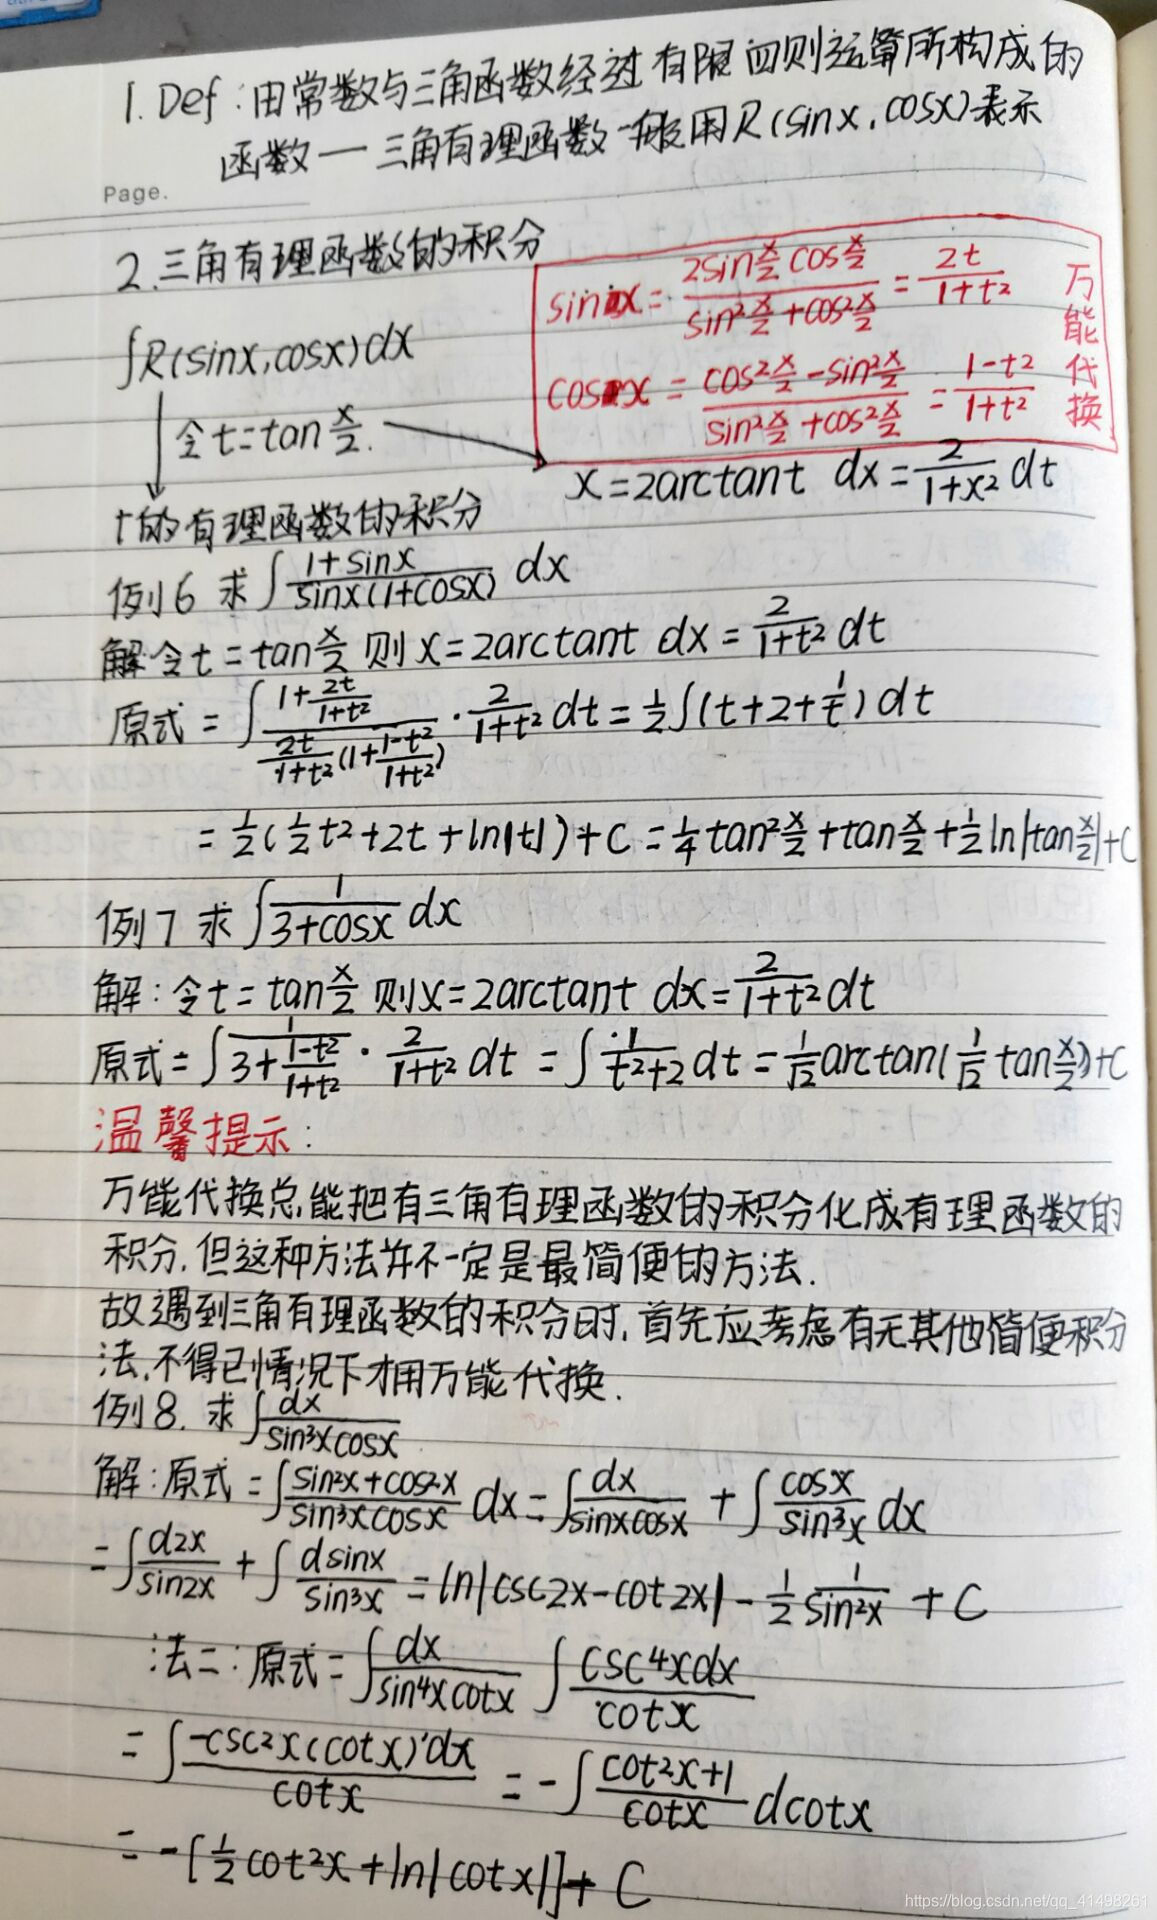 1. Def：由常数与三角函数经过有限四则运算所构成的
函数一三角有理函数 一般用R(sinx,cosx)表示
Page.
2.三角有理函数的积分
∫R(sinx,cosx)dx
令t=tan x/2.
sinx = (2sin x/2 cos x/2)/(sin² x/2 + cos² x/2) = 2t/(1+t²)
cosx = (cos² x/2 - sin² x/2)/(sin² x/2 + cos² x/2) = (1-t²)/(1+t²)
万能代换
x=2arctant dx=2/(1+x²) dt
t的有理函数的积分
例6 求 ∫(1+sinx)/(sinx(1+cosx)) dx
解:令t=tan x/2 则x=2arctant dx=2/(1+t²) dt
原式=∫(1+2t/(1+t²))/(2t/(1+t²)(1+(1-t²)/(1+t²)))·2/(1+t²) dt=1/2∫(t+2+1/t)dt
=1/2(1/2t²+2t+ln|t|)+C=1/4tan² x/2+tan x/2+1/2ln|tan x/2|+C
例7 求 ∫1/(3+cosx) dx
解:令t=tan x/2 则x=2arctant dx=2/(1+t²) dt
原式=∫1/(3+(1-t²)/(1+t²))·2/(1+t²) dt=∫1/(t²+2) dt=1/√2 arctan(1/√2 tan x/2)+C
温馨提示:
万能代换总能把有三角有理函数的积分化成有理函数的
积分,但这种方法并不一定是最简便的方法.
故遇到三角有理函数的积分时,首先应考虑有无其他简便积分
法,不得已情况下才用万能代换.
例8. 求 ∫dx/(sin³xcosx)
解:原式=∫(sin²x+cos²x)/(sin³xcosx) dx=∫dx/(sinxcosx)+∫cosx/sin³x dx
=∫d2x/sin2x+∫dsinx/sin³x=ln|csc2x-cot2x|-1/2 1/sin²x+C
法二:原式=∫dx/(sin⁴xcotx) ∫csc⁴xdx/cotx
=∫-csc²x(cotx)'dx/cotx=-∫(cot²x+1)/cotx dcotx
=-[1/2cot²x+ln|cotx|]+C
https://blog.csdn.net/qq_41498261